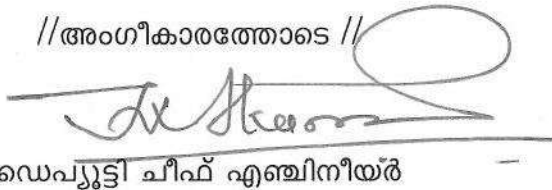 //അംഗീകാരത്തോടെ //
ഡെപ്യൂട്ടി ചീഫ് എഞ്ചിനീയർ